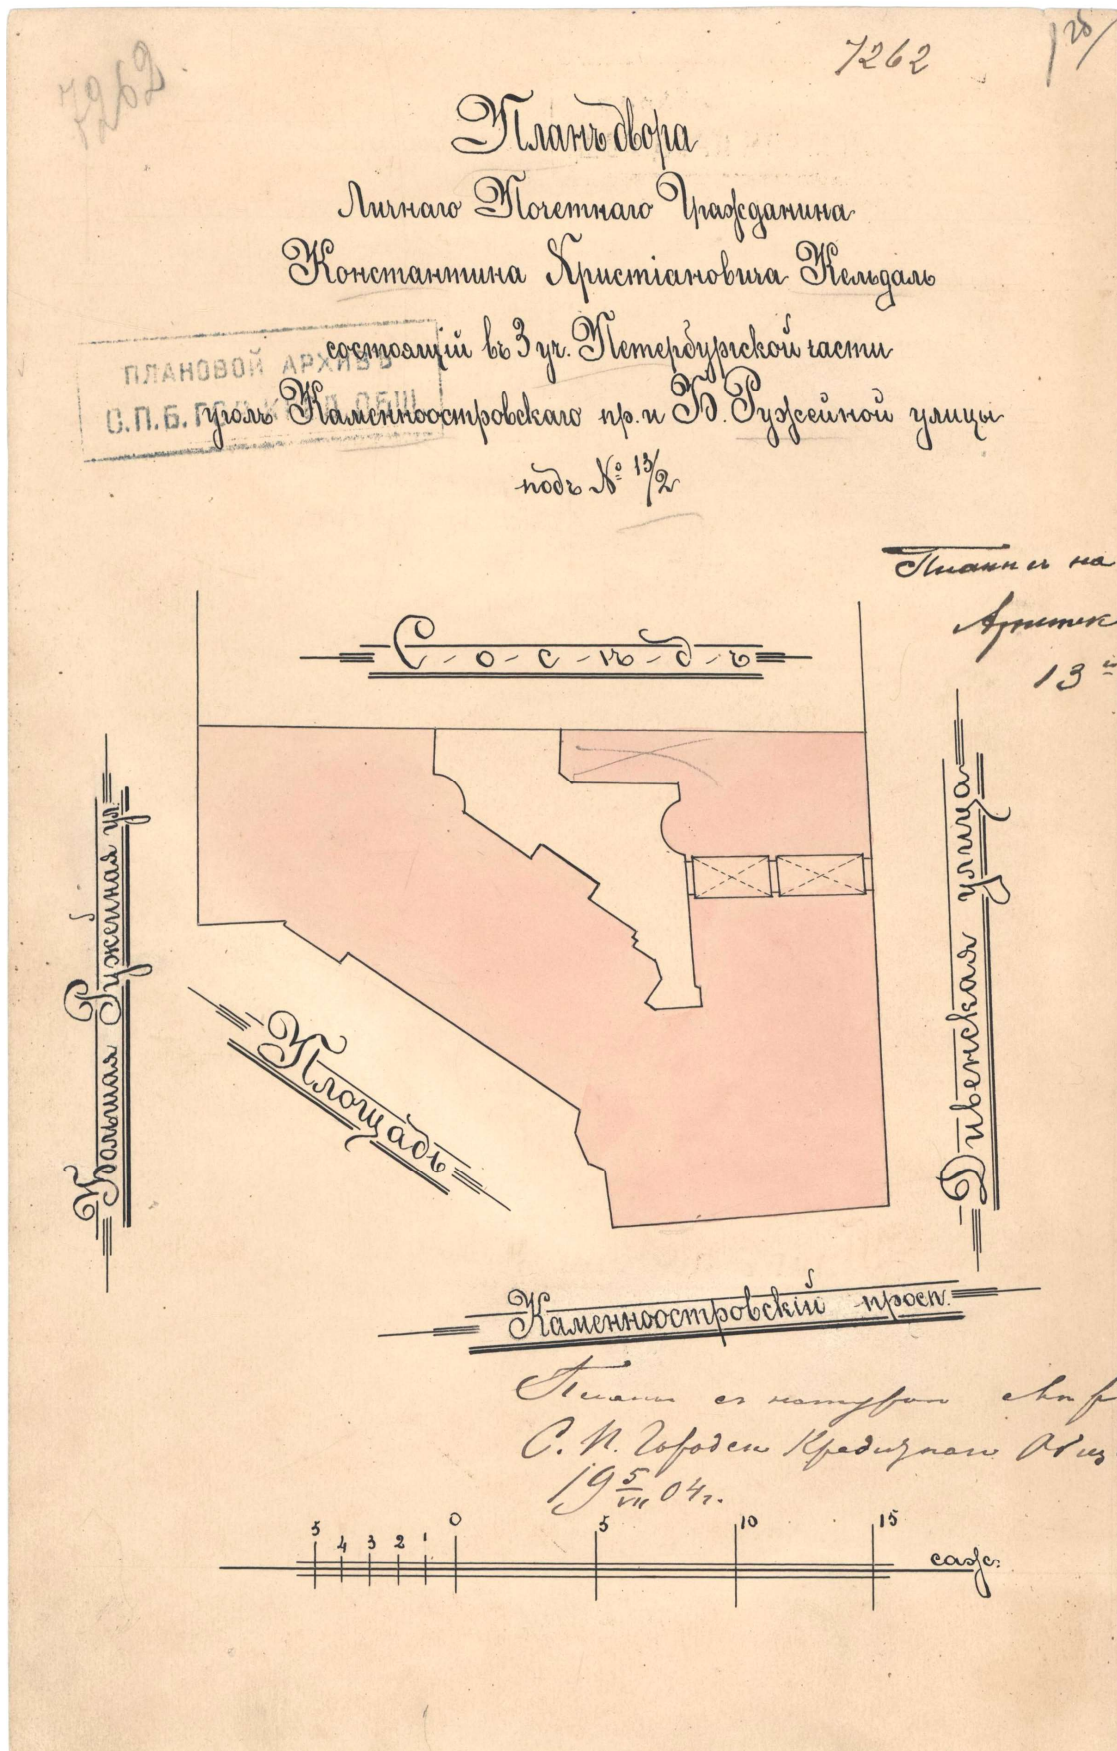 7262
7262
Планъ двора
Личнаго Почетнаго Гражданина
Константина Христіановича Кельдаль
состоящій въ 3 уч. Петербургской части
уголъ Каменноостровскаго пр. и Б. Ружейной улицы
подъ № 13/2
ПЛАНОВОЙ АРХИВЪ
С.П.Б. ОБЩ
на
13
С-о-с-ѣ-д-ъ
Большая Ружейная ул.
Площадь
Дивенская улица
Каменноостровскій просп.
Планъ съ натурою
С. П. Городск Кредитнаго
19 5/VII 04 г.
5 4 3 2 1 0 5 10 15 саж: